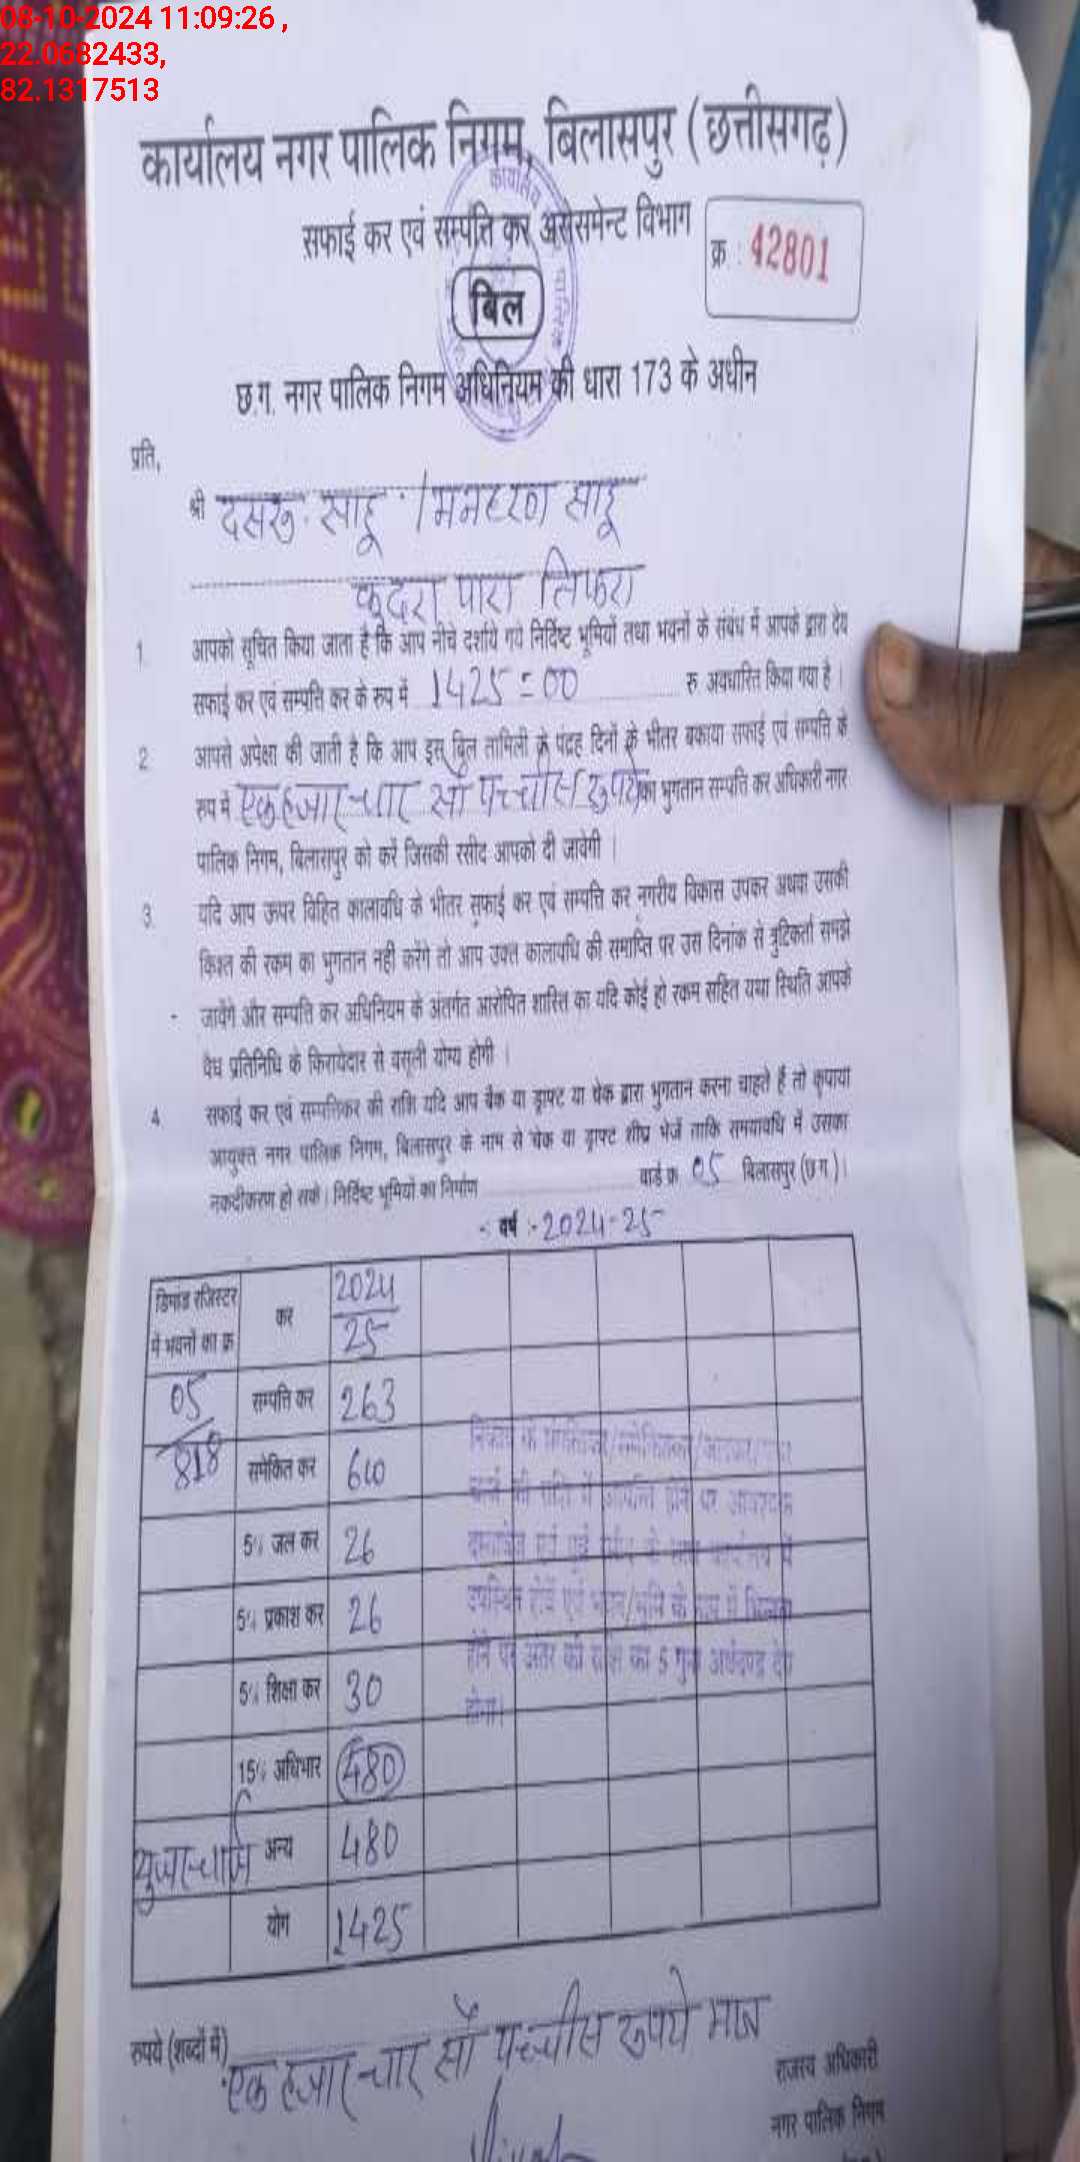 08-10-2024 11:09:26 ,
22.0682433,
82.1317513
कार्यालय नगर पालिक निगम, बिलासपुर (छत्तीसगढ़)
सफाई कर एवं सम्पत्ति कर असेसमेन्ट विभाग
क्र. : 42801
बिल
छ.ग. नगर पालिक निगम अधिनियम की धारा 173 के अधीन
प्रति,
श्री दसरु साहू / मनहरण साहू
कुदरा पारा तिफरा
1. आपको सूचित किया जाता है कि आप नीचे दर्शाये गये निर्दिष्ट भूमियों तथा भवनों के संबंध में आपके द्वारा देय
सफाई कर एवं सम्पत्ति कर के रुप में 1425=00 रु अवधारित किया गया है ।
2. आपसे अपेक्षा की जाती है कि आप इस बिल तामिली के पंद्रह दिनों के भीतर बकाया सफाई एवं सम्पत्ति के
रुप में एक हजार चार सौ पच्चीस रुपये का भुगतान सम्पत्ति कर अधिकारी नगर
पालिक निगम, बिलासपुर को करें जिसकी रसीद आपको दी जावेगी ।
3. यदि आप ऊपर विहित कालावधि के भीतर सफाई कर एवं सम्पत्ति कर नगरीय विकास उपकर अथवा उसकी
किश्त की रकम का भुगतान नही करेंगे तो आप उक्त कालावधि की समाप्ति पर उस दिनांक से त्रुटिकर्ता समझे
जावेंगे और सम्पत्ति कर अधिनियम के अंतर्गत आरोपित शास्ति का यदि कोई हो रकम सहित यथा स्थिति आपके
वैध प्रतिनिधि के किरायेदार से वसूली योग्य होगी ।
4. सफाई कर एवं सम्पत्तिकर की राशि यदि आप बैंक या ड्राफ्ट या चेक द्वारा भुगतान करना चाहते हैं तो कृपया
आयुक्त नगर पालिक निगम, बिलासपुर के नाम से चेक या ड्राफ्ट शीघ्र भेजें ताकि समयावधि में उसका
नकदीकरण हो सके । निर्दिष्ट भूमियों का निर्माण वार्ड क्र 05 बिलासपुर (छ ग.) ।
वर्ष :- 2024-25
डिमांड रजिस्टर में भवनों का क्र कर 2024/25
05/818 सम्पत्ति कर 263
समेकित कर 600
5% जल कर 26
5% प्रकाश कर 26
5% शिक्षा कर 30
15% अधिभार 480
युजर चार्ज अन्य 480
योग 1425
होने पर अंतर की राशि का 5 गुना अर्थदण्ड देय
होगा।
रुपये (शब्दों में) एक हजार चार सौ पच्चीस रुपये मात्र
राजस्व अधिकारी
नगर पालिक निगम